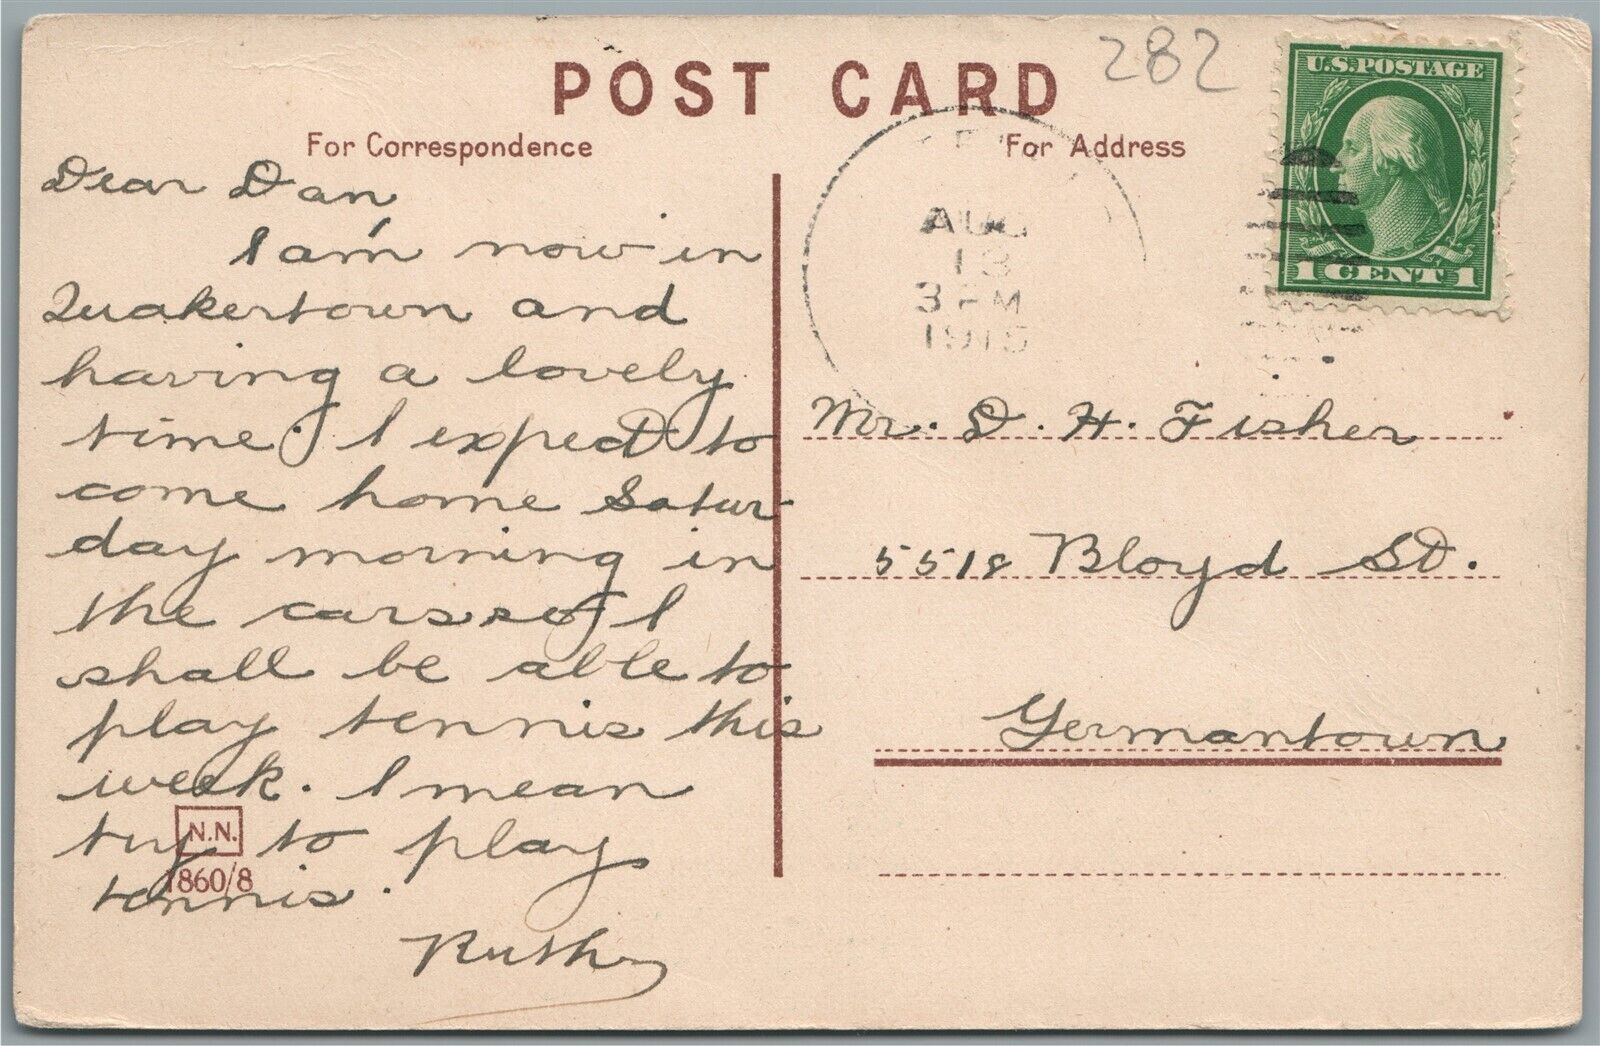 POST CARD
282
U.S. POSTAGE
1 CENT 1
For Correspondence
For Address
AUG
13
3 PM
1915
Dear Dan,
I am now in
Quakertown and
having a lovely
time. I expect to
come home Satur-
day morning in
the cars so I
shall be able to
play tennis this
week. I mean
try to play
tennis.
Ruth
N.N.
1860/8
Mr. D. H. Fisher
5518 Bloyd St.
Germantown